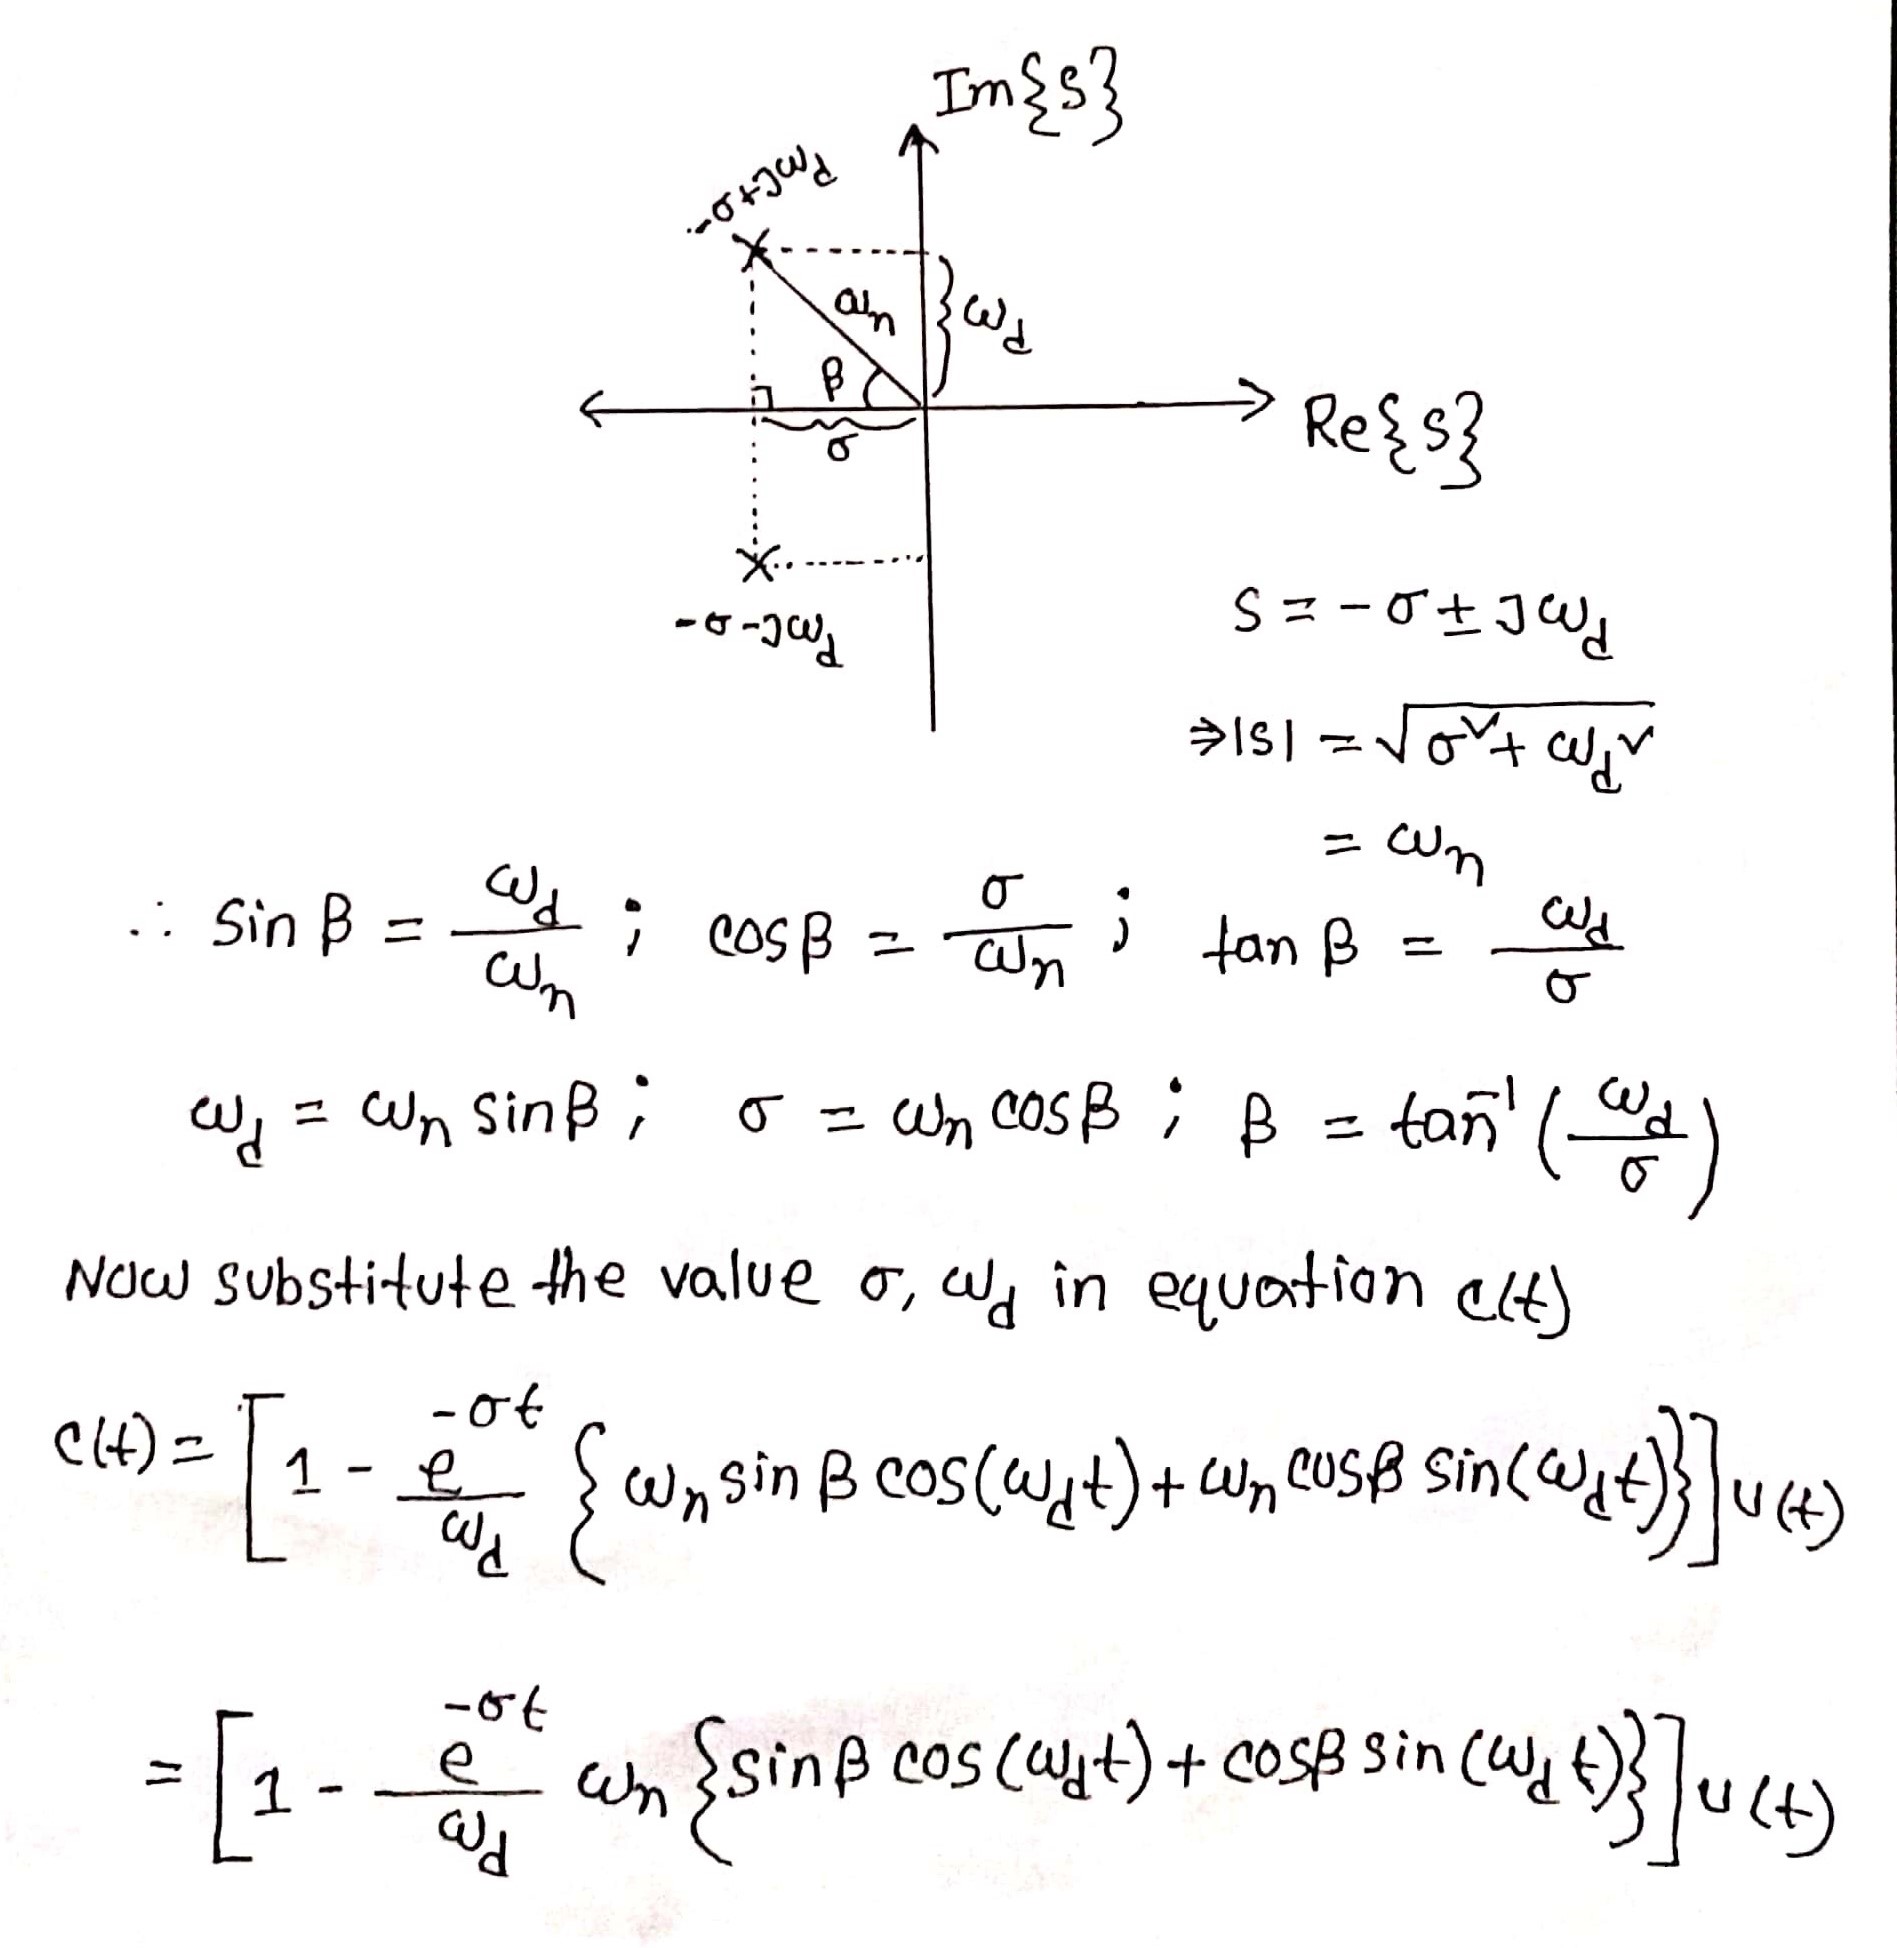 Im{s}
-σ+jω_d
ω_n
}ω_d
β
σ
Re{s}
-σ-jω_d
s = -σ ± jω_d
⇒|s| = √(σ² + ω_d²)
= ω_n
∴ sin β = ω_d/ω_n ; cos β = σ/ω_n ; tan β = ω_d/σ
ω_d = ω_n sin β ; σ = ω_n cos β ; β = tan⁻¹(ω_d/σ)
Now substitute the value σ, ω_d in equation c(t)
c(t) = [1 - e^(-σt)/ω_d {ω_n sin β cos(ω_d t) + ω_n cos β sin(ω_d t)}] u(t)
= [1 - e^(-σt)/ω_d ω_n {sin β cos(ω_d t) + cos β sin(ω_d t)}] u(t)